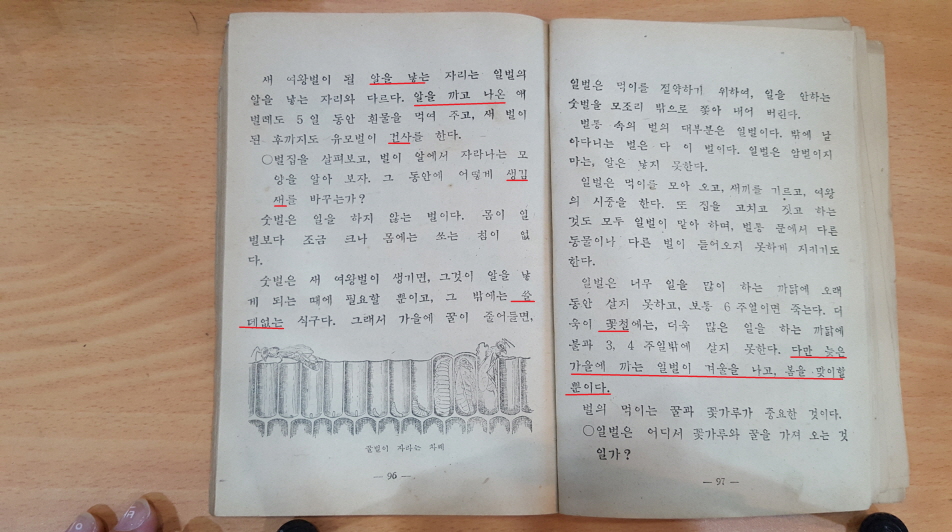 새 여왕벌이 될 알을 낳는 자리는 일벌의
알을 낳는 자리와 다르다. 알을 까고 나온 애
벌레도 5일 동안 흰물을 먹여 주고, 새 벌이
된 후까지도 유모벌이 건사를 한다.
○벌집을 살펴보고, 벌이 알에서 자라나는 모
양을 알아 보자. 그 동안에 어떻게 생김
새를 바꾸는가?
숫벌은 일을 하지 않는 벌이다. 몸이 일
벌보다 조금 크나 몸에는 쏘는 침이 없
다.
숫벌은 새 여왕벌이 생기면, 그것이 알을 낳
게 되는 때에 필요할 뿐이고, 그 밖에는 쓸
데없는 식구다. 그래서 가을에 꿀이 줄어들면,
꿀벌이 자라는 차례
— 96 —
일벌은 먹이를 절약하기 위하여, 일을 안하는
숫벌을 모조리 밖으로 쫓아 내어 버린다.
벌통 속의 벌의 대부분은 일벌이다. 밖에 날
아다니는 벌은 다 이 벌이다. 일벌은 암벌이지
마는, 알은 낳지 못한다.
일벌은 먹이를 모아 오고, 새끼를 기르고, 여왕
의 시중을 한다. 또 집을 고치고 짓고 하는
것도 모두 일벌이 맡아 하며, 벌통 문에서 다른
동물이나 다른 벌이 들어오지 못하게 지키기도
한다.
일벌은 너무 일을 많이 하는 까닭에 오래
동안 살지 못하고, 보통 6주일이면 죽는다. 더
욱이 꽃철에는, 더욱 많은 일을 하는 까닭에
불과 3, 4주일밖에 살지 못한다. 다만 늦은
가을에 까는 일벌이 겨울을 나고, 봄을 맞이할
뿐이다.
벌의 먹이는 꿀과 꽃가루가 중요한 것이다.
○일벌은 어디서 꽃가루와 꿀을 가져 오는 것
일가?
— 97 —